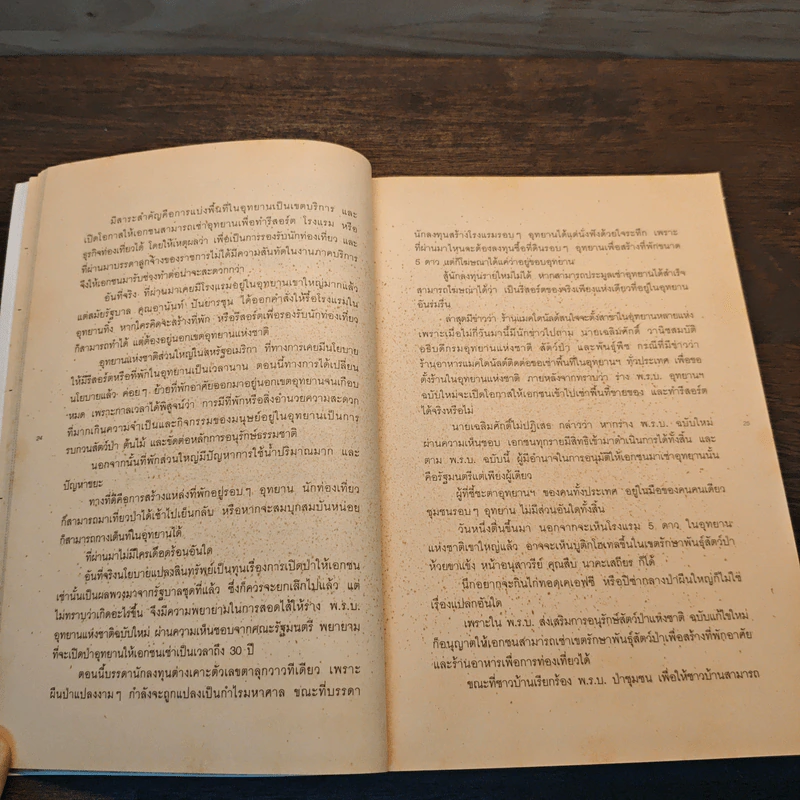 มีสาระสำคัญคือการแบ่งพื้นที่ในอุทยานเป็นเขตบริการ และ
เปิดโอกาสให้เอกชนสามารถเช่าอุทยานเพื่อทำรีสอร์ต โรงแรม หรือ
ธุรกิจท่องเที่ยวได้ โดยให้เหตุผลว่า เพื่อเป็นการรองรับนักท่องเที่ยว และ
ที่ผ่านมาบรรดาลูกจ้างของราชการไม่ได้มีความสันทัดในงานภาคบริการ
จึงให้เอกชนมารับช่วงทำต่อน่าจะสะดวกกว่า
อันที่จริง ที่ผ่านมาเคยมีโรงแรมอยู่ในอุทยานเขาใหญ่มาแล้ว
แต่สมัยรัฐบาล คุณอานันท์ ปันยารชุน ได้ออกคำสั่งให้รื้อโรงแรมใน
อุทยานทิ้ง หากใครคิดจะสร้างที่พัก หรือรีสอร์ตเพื่อรองรับนักท่องเที่ยว
ก็สามารถทำได้ แต่ต้องอยู่นอกเขตอุทยานแห่งชาติ
อุทยานแห่งชาติส่วนใหญ่ในสหรัฐอเมริกา ที่ทางการเคยมีนโยบาย
ให้มีรีสอร์ตหรือที่พักในอุทยานเป็นเวลานาน ตอนนี้ทางการได้เปลี่ยน
นโยบายแล้ว ค่อยๆ ย้ายที่พักอาศัยออกมาอยู่นอกเขตอุทยานจนเกือบ
หมด เพราะกาลเวลาได้พิสูจน์ว่า การมีที่พักหรือสิ่งอำนวยความสะดวก
ที่มากเกินความจำเป็นและกิจกรรมของมนุษย์อยู่ในอุทยานเป็นการ
รบกวนสัตว์ป่า ต้นไม้ และขัดต่อหลักการอนุรักษ์ธรรมชาติ
นอกจากนั้นที่พักส่วนใหญ่มีปัญหาการใช้น้ำปริมาณมาก และ
ปัญหาขยะ
ทางที่ดีคือการสร้างแหล่งที่พักอยู่รอบๆ อุทยาน นักท่องเที่ยว
ก็สามารถมาเที่ยวป่าได้เช้าไปเย็นกลับ หรือหากจะสมบุกสมบันหน่อย
ก็สามารถกางเต็นท์ในอุทยานได้
ที่ผ่านมาไม่มีใครเดือดร้อนอันใด
อันที่จริงนโยบายแปลงสินทรัพย์เป็นทุนเรื่องการเปิดป่าให้เอกชน
เช่านั้นเป็นผลพวงมาจากรัฐบาลชุดที่แล้ว ซึ่งก็ควรจะยกเลิกไปแล้ว แต่
ไม่ทราบว่าเกิดอะไรขึ้น จึงมีความพยายามในการสอดไส้ให้ร่าง พ.ร.บ.
อุทยานแห่งชาติฉบับใหม่ ผ่านความเห็นชอบจากคณะรัฐมนตรี พยายาม
ที่จะเปิดป่าอุทยานให้เอกชนเช่าเป็นเวลาถึง 30 ปี
ตอนนี้บรรดานักลงทุนต่างเคาะตัวเลขตาลุกวาวทีเดียว เพราะ
ผืนป่าแปลงงามๆ กำลังจะถูกแปลงเป็นกำไรมหาศาล ขณะที่บรรดา
24
นักลงทุนสร้างโรงแรมรอบๆ อุทยานได้แต่นั่งฟังด้วยใจระทึก เพราะ
ที่ผ่านมาใหนจะต้องลงทุนซื้อที่ดินรอบๆ อุทยานเพื่อสร้างที่พักขนาด
5 ดาว แต่ก็โฆษณาได้แค่ว่าอยู่ขอบอุทยาน
สู้นักลงทุนรายใหม่ไม่ได้ หากสามารถประมูลเช่าอุทยานได้สำเร็จ
สามารถโฆษณาได้ว่า เป็นรีสอร์ตของจริงเพียงแห่งเดียวที่อยู่ในอุทยาน
อันร่มรื่น
ล่าสุดมีข่าวว่า ร้านแมคโดนัลด์สนใจจะตั้งสาขาในอุทยานหลายแห่ง
เพราะเมื่อไม่กี่วันมานี้มีนักข่าวไปถาม นายเฉลิมศักดิ์ วานิชสมบัติ
อธิบดีกรมอุทยานแห่งชาติ สัตว์ป่า และพันธุ์พืช กรณีที่มีข่าวว่า
ร้านอาหารแมคโดนัลด์ติดต่อขอเช่าพื้นที่ในอุทยานฯ ทั่วประเทศ เพื่อขอ
ตั้งร้านในอุทยานแห่งชาติ ภายหลังจากทราบว่า ร่าง พ.ร.บ. อุทยานฯ
ฉบับใหม่จะเปิดโอกาสให้เอกชนเข้าไปเช่าพื้นที่ขายของ และ ทำรีสอร์ต
ได้จริงหรือไม่
นายเฉลิมศักดิ์ไม่ปฏิเสธ กล่าวว่า หากร่าง พ.ร.บ. ฉบับใหม่
ผ่านความเห็นชอบ เอกชนทุกรายมีสิทธิเข้ามาดำเนินการได้ทั้งสิ้น และ
ตาม พ.ร.บ. ฉบับนี้ ผู้มีอำนาจในการอนุมัติให้เอกชนมาเช่าอุทยานนั้น
คือรัฐมนตรีแต่เพียงผู้เดียว
ผู้ที่ชี้ชะตาอุทยานฯ ของคนทั้งประเทศ อยู่ในมือของคนคนเดียว
ชุมชนรอบๆ อุทยาน ไม่มีส่วนอันใดทั้งสิ้น
วันหนึ่งตื่นขึ้นมา นอกจากจะเห็นโรงแรม 5 ดาว ในอุทยาน
แห่งชาติเขาใหญ่แล้ว อาจจะเห็นบูติกโฮเทลขึ้นในเขตรักษาพันธุ์สัตว์ป่า
ห้วยขาแข้ง หน้าอนุสาวรีย์ คุณสืบ นาคะเสถียร ก็ได้
นึกอยากจะกินไก่ทอดเคเอฟซี หรือปีซ่ากลางป่าผืนใหญ่ก็ไม่ใช่
เรื่องแปลกอันใด
เพราะใน พ.ร.บ. ส่งเสริมการอนุรักษ์สัตว์ป่าแห่งชาติ ฉบับแก้ไขใหม่
ก็อนุญาตให้เอกชนสามารถเช่าเขตรักษาพันธุ์สัตว์ป่าเพื่อสร้างที่พักอาศัย
และร้านอาหารเพื่อการท่องเที่ยวได้
ขณะที่ชาวบ้านเรียกร้อง พ.ร.บ. ป่าชุมชน เพื่อให้ชาวบ้านสามารถ